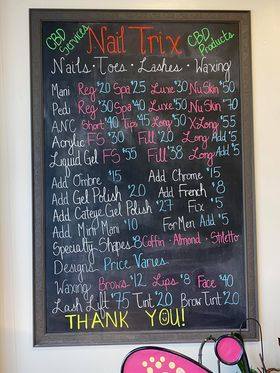 CBD Services Nail Trix CBD Products
Nails · Toes · Lashes · Waxing
Mani Reg $20 Spa $25 Luxe $30 Nu Skin $50
Pedi Reg $30 Spa $40 Luxe $50 Nu Skin $70
ANC Short $40 Tips $45 Long $50 X-Long $55
Acrylic FS $30 Fill $20 Long Add $5
Liquid Gel FS $55 Fill $38 Long Add $5
Add Ombre $15 Add Chrome $15
Add Gel Polish $20 Add French $8
Add Cateye Gel Polish $27 Fix $5
Add Mini Mani $10 For Men Add $5
Specialty Shapes $8 Coffin · Almond · Stiletto
Designs Price Varies
Waxing Brows $12 Lips $8 Face $40
Lash Lift $75 Tint $20 Brow Tint $20
THANK YOU!